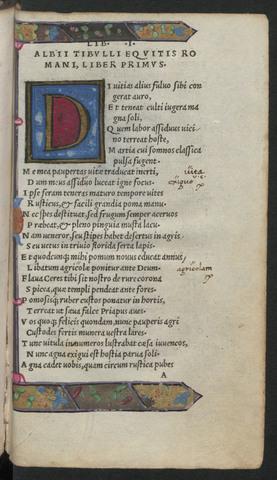 LIB. I.
ALBII TIBVLLI EQVITIS RO
MANI, LIBER PRIMVS.
D Iuitias alius fuluo sibi con
gerat auro,
Et teneat culti iugera ma
gna soli,
Quem labor assiduus uici
no terreat hoste,
Martia cui somnos classica
pulsa fugent.
Me mea paupertas uitæ traducat inerti,
Dum meus assiduo luceat igne focus.
Ipse seram teneras maturo tempore uites
Rusticus, & facili grandia poma manu.
Nec spes destituat, sed frugum semper aceruos
Præbeat, & pleno pinguia musta lacu.
Nam ueneror, seu stipes habet desertus in agris,
Seu uetus in triuio florida serta lapis.
Et quodcunq; mihi pomum nouus educat annus,
Libatum agricolæ ponitur ante Deum.
Flaua Ceres tibi sit nostro de rure corona
Spicea, quæ templi pendeat ante fores.
Pomosisq; ruber custos ponatur in hortis,
Terreat ut sæua falce Priapus aues.
Vos quoq; felicis quondam, nunc pauperis agri
Custodes fertis munera uestra lares.
Tunc uitula innumeros lustrabat cæsa iuuencos,
Nunc agna exigui est hostia parua soli.
Agna cadet uobis, quam circum rustica pubes
A
exiguo
agricolam